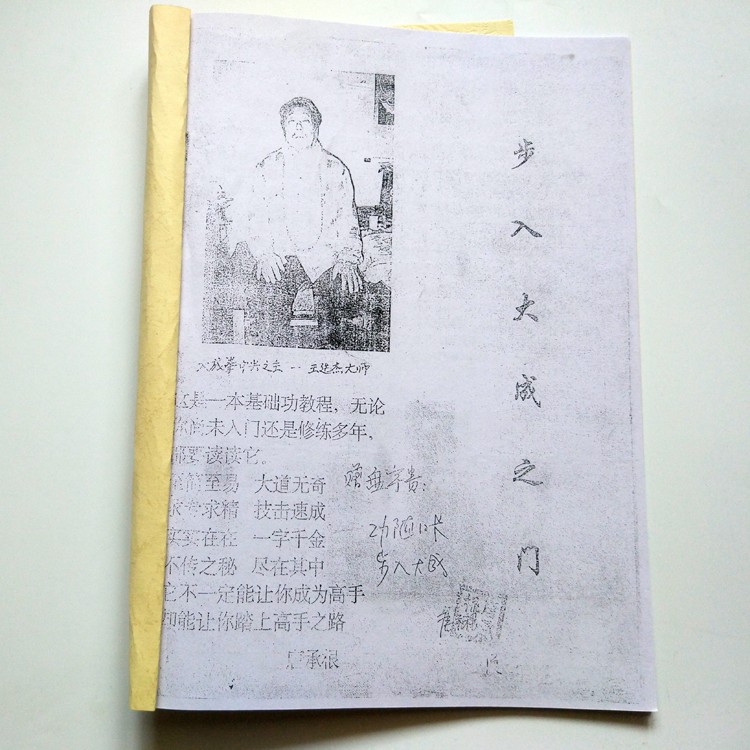 步入大成之门
大成拳中兴之主 -- 王选杰大师
这是一本基础功教程，无论
你尚未入门还是修练多年，
都要读读它。
至简至易 大道无奇
求精 技击速成
实实在在 一字千金
不传之秘 尽在其中
它不一定能让你成为高手
却能让你踏上高手之路
承浪
功
步入大成